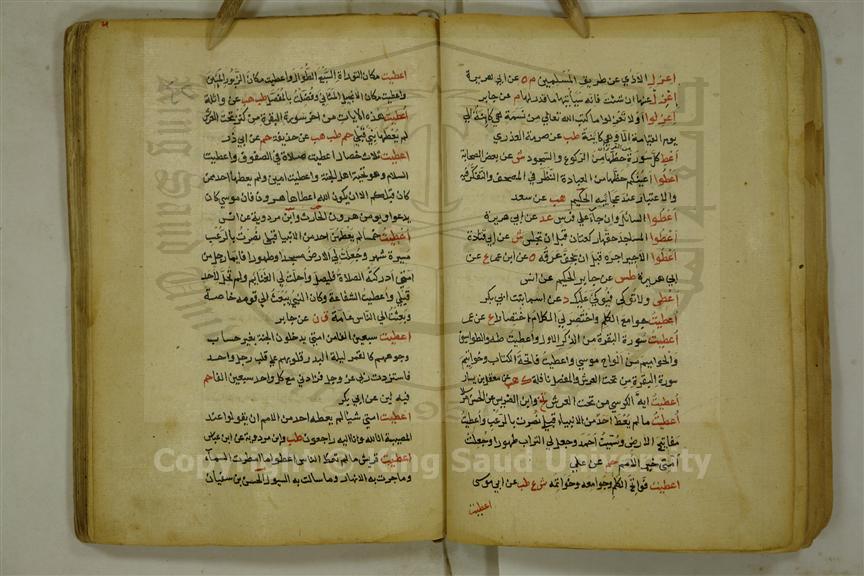 اعزل الاذي عن طريق المسلمين م ه عن ابي هريرة
اعزل عنها ان شئت فانه سيأتيها ما قدر لها م عن جابر
اعزلوا اولا تعزلوا ما كتب الله تعالي من نسمة هي كاينة الي
يوم القيامة الا وهي كاينة طب عن صرمة العذري
اعط كل سورة حظها من الركوع والسجود ش عن بعض الصحابة
اعطوا اعينكم حظها من العبادة النظر في المصحف والتفكر فيه
والاعتبار عند عجائبه الحكيم هب عن ابي سعيد
اعطوا السائل وان جآء علي فرس عد عن ابي هريرة
اعطوا المساجد حقها ركعتان قبل ان تجلس ش عن ابي قتادة
اعطوا الاجير اجره قبل ان يجف عرقه ه عن ابن عمر ع عن
ابي هريرة طس عن جابر الحكيم عن انس
اعطي ولا توكي فيوكي عليك د عن اسما بنت ابي بكر
اعطيت جوامع الكلم واختصر لي الكلام اختصارا ع عن عمر
اعطيت سورة البقرة من الذكر الاول واعطيت طه والطواسين
والحواميم من الواح موسي واعطيت فاتحة الكتاب وخواتيم
سورة البقرة من تحت العرش والمفصل نافلة ك هب عن معقل بن يسار
اعطيت اية الكرسي من تحت العرش تخ وابن الضريس عن الحسن
اعطيت ما لم يعط احد من الانبياء قبلي نصرت بالرعب واعطيت
مفاتيح الارض وسميت احمد وجعل لي التراب طهورا وجعلت
امتي خير الامم حم عن علي
اعطيت فواتح الكلم وجوامعه وخواتمه ش ع طب عن ابي موسي
اعطيت
اعطيت مكان التوراة السبع الطوال واعطيت مكان الزبور المئين
واعطيت مكان الانجيل المثاني وفضلت بالمفصل طب هب عن واثلة
اعطيت هذه الايات من اخر سورة البقرة من كنز تحت العرش
لم يعطها نبي قبلي حم طب هب عن حذيفة حم عن ابي ذر
اعطيت ثلاث خصال اعطيت صلاة في الصفوف واعطيت
السلام وهو تحية اهل الجنة واعطيت امين ولم يعطها احد من
كان قبلكم الا ان يكون الله اعطاها هرون فان موسي كان
يدعوا ويومن هرون الحارث وابن مردوية عن انس
اعطيت خمسا لم يعطهن احد من الانبيا قبلي نصرت بالرعب
مسيرة شهر وجعلت لي الارض مسجدا وطهورا فايما رجل من
امتي ادركته الصلاة فليصل واحلت لي الغنايم ولم تحل لاحد
قبلي واعطيت الشفاعة وكان النبي يبعث الي قومه خاصة
وبعثت الي الناس عامة ق ن عن جابر
اعطيت سبعين الفا من امتي يدخلون الجنة بغير حساب
وجوههم كالقمر ليلة البدر قلوبهم علي قلب رجل واحد
فاستزدت ربي عز وجل فزادني مع كل واحد سبعين الفا حم
عن ابي بكر
اعطيت امتي شيا لم يعطه احد من الامم ان يقولوا عند
المصيبة انا لله وانا اليه راجعون طب وابن مردوية عن ابن عباس
اعطيت قريش ما لم يعط الناس اعطوا ما امطرت السمآء
وما جرت به الانهار وما سالت به السيول الحسن بن سفيان
Copyright © King Saud University